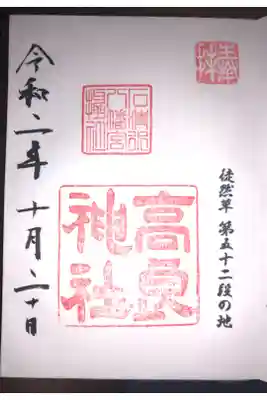 奉拝
徒然草 第五十二段の地
石清水
八幡宮
摂社
高良
神社
令和二年 十月二十日